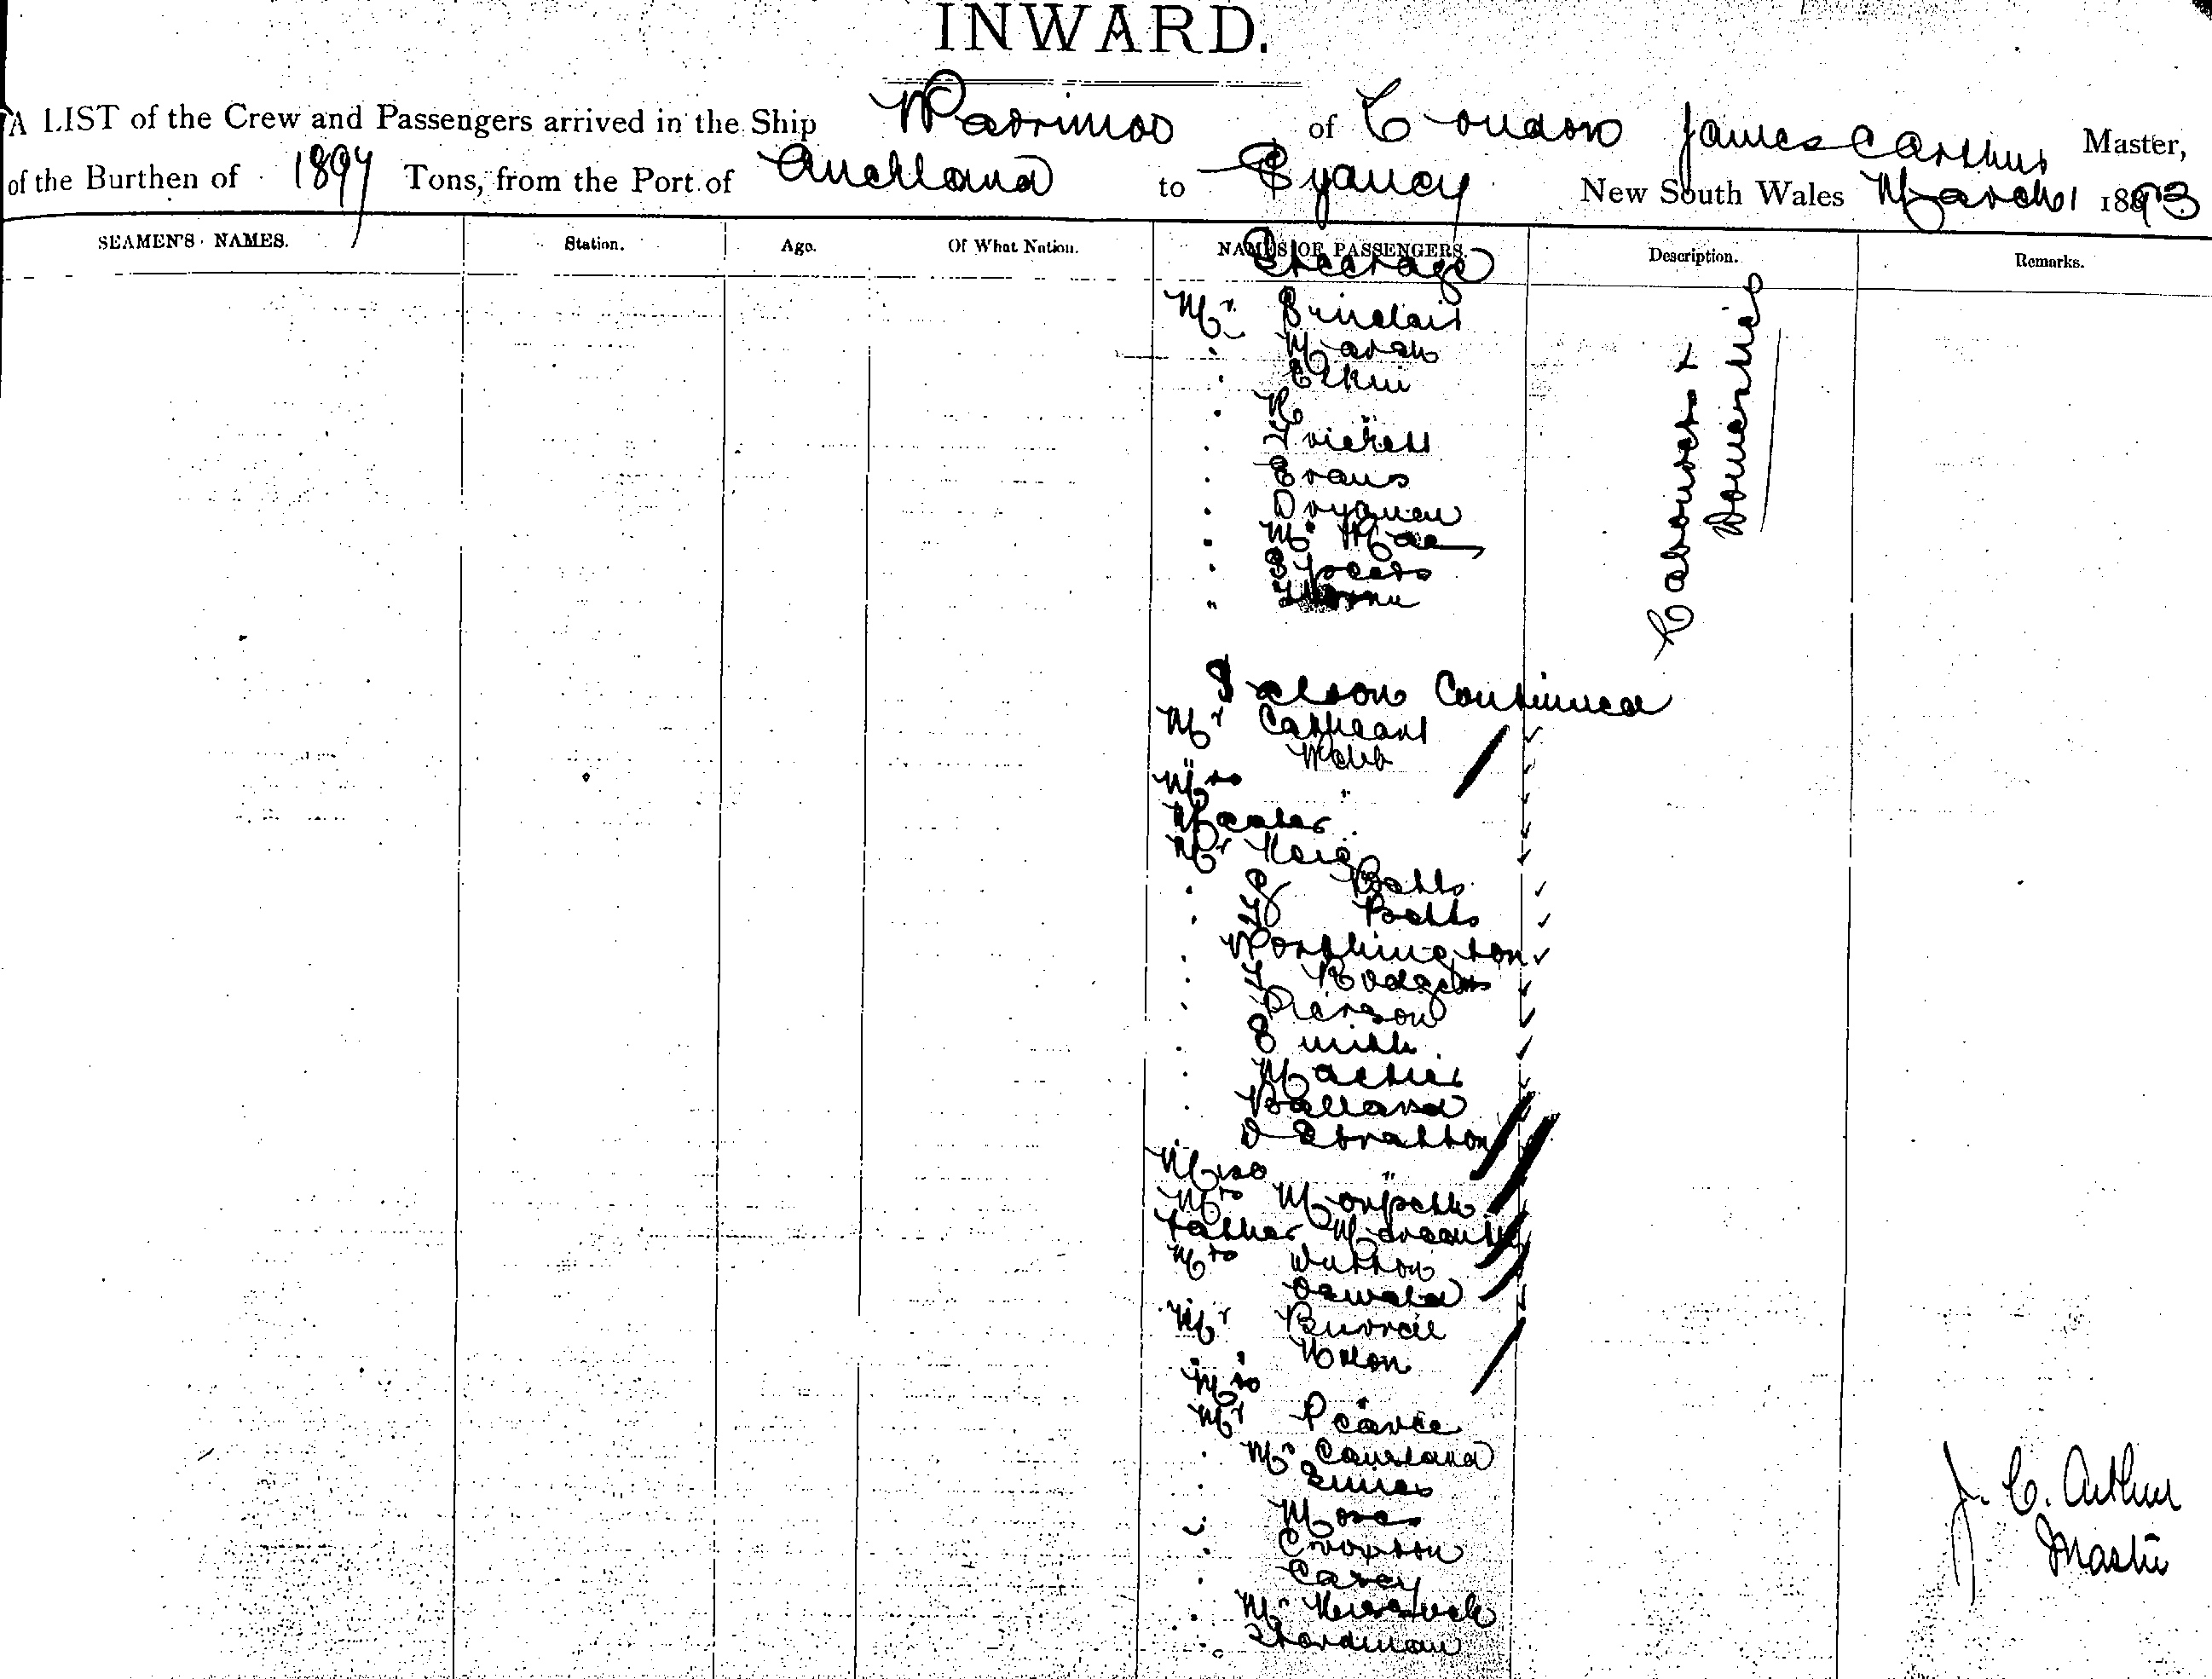 INWARD.
A LIST of the Crew and Passengers arrived in the Ship Warrimoo of London James C Arthur Master,
of the Burthen of 1897 Tons, from the Port of Auckland to Sydney New South Wales March 1 1893
SEAMEN'S NAMES. Station. Age. Of What Nation. NAMES OF PASSENGERS. Description. Remarks.
Steerage
Mr Sinclair
" Marsh
" Elkin
"
" Trickett
" Evans
" Drynan
" McRae
" Speers
"
Labourers &
Domestics
Saloon Continued
Mr Cathcart
Webb
Mrs "
Master "
Mr Haig
" Batts
" Batts
" Worthington
" T Rodgers
" Pierson
" Smith
" Mather
" Ballard
D Stratton
Miss "
Mrs Morpeth
Father
Mrs Dutton
Oswald
Mr Burrell
" Nolon
Mrs "
Mr Pearce
" McCausland
" Innes
" Moses
" Croxson
" Casey
" Mc
" Hardman
J. C. Arthur
Master